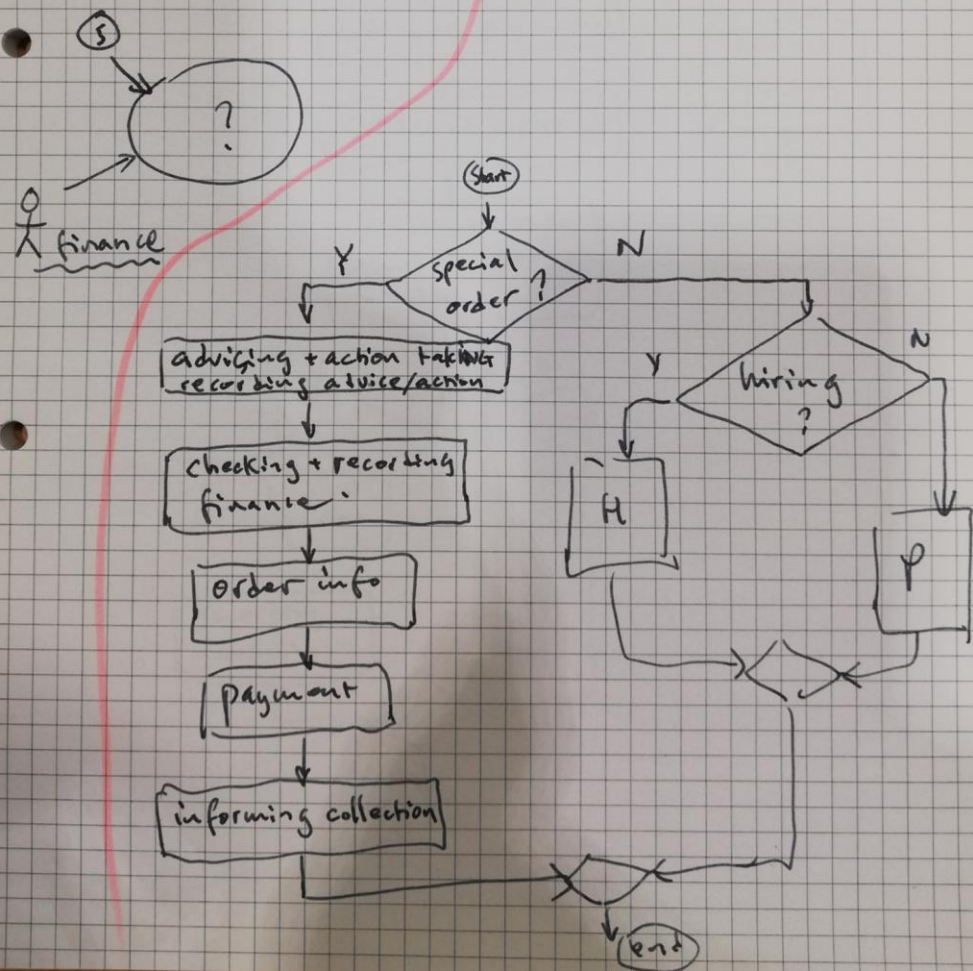 S
?
finance
Start
Y
special
order ?
N
advicing + action taking
recording advice/action
Y
hiring
?
N
checking + recording
finance.
H
P
order info
payment
informing collection
end